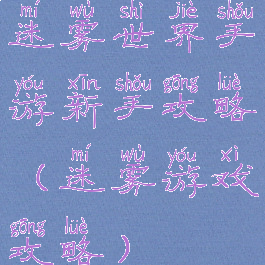 mí wù shì jiè shǒu
迷雾世界手
yóu xīn shǒu gōng lüè
游新手攻略
mí wù yóu xì
（迷雾游戏
gōng lüè
攻略）